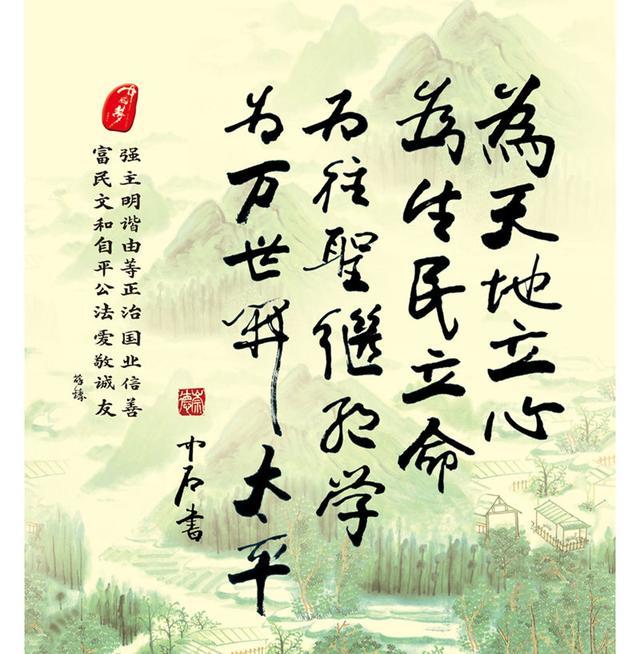 為天地立心
為生民立命
为往聖繼絕学
为万世开太平
中石書
崇德
中国梦
富强
民主
文明
和谐
自由
平等
公正
法治
爱国
敬业
诚信
友善